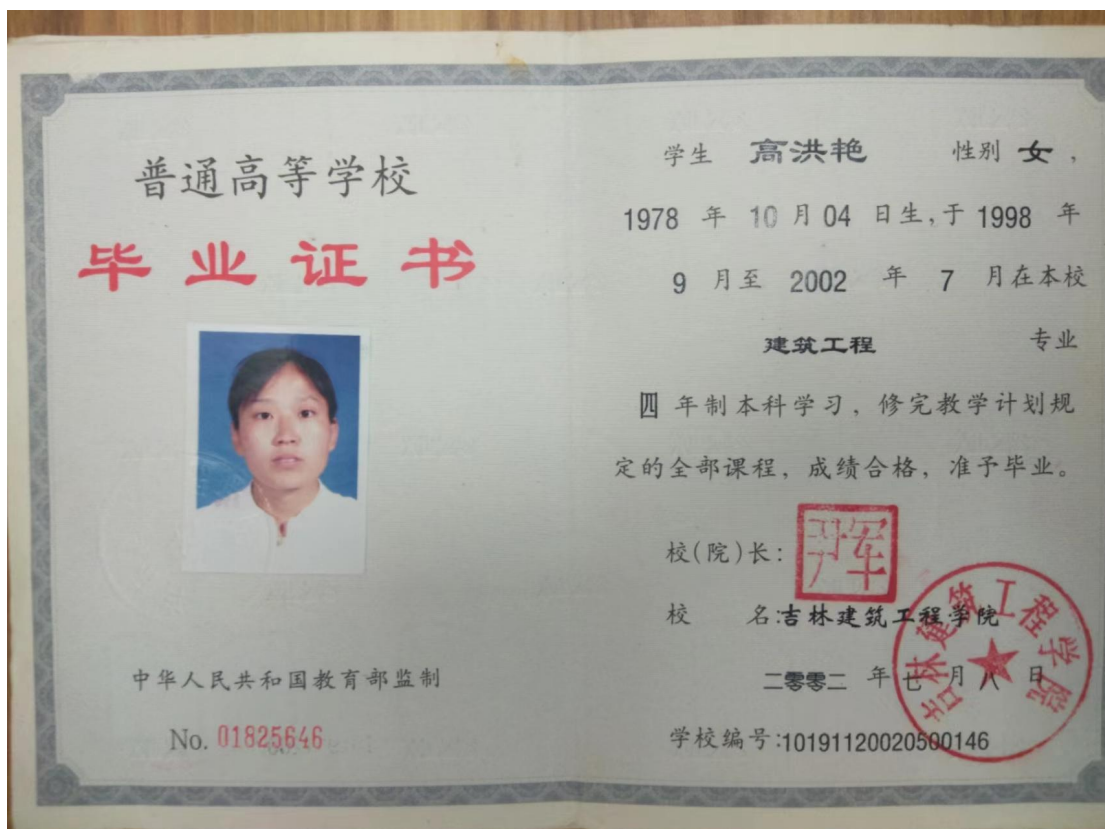 普通高等学校
毕业证书
中华人民共和国教育部监制
No. 01825646
学生 高洪艳 性别 女，
1978 年 10 月 04 日生，于 1998 年
9 月至 2002 年 7 月在本校
建筑工程 专业
四 年制本科学习，修完教学计划规
定的全部课程，成绩合格，准予毕业。
校(院)长：
尹军
校 名:吉林建筑工程学院
二零零二 年 七 月 八 日
吉林建筑工程学院
学校编号:10191120020500146